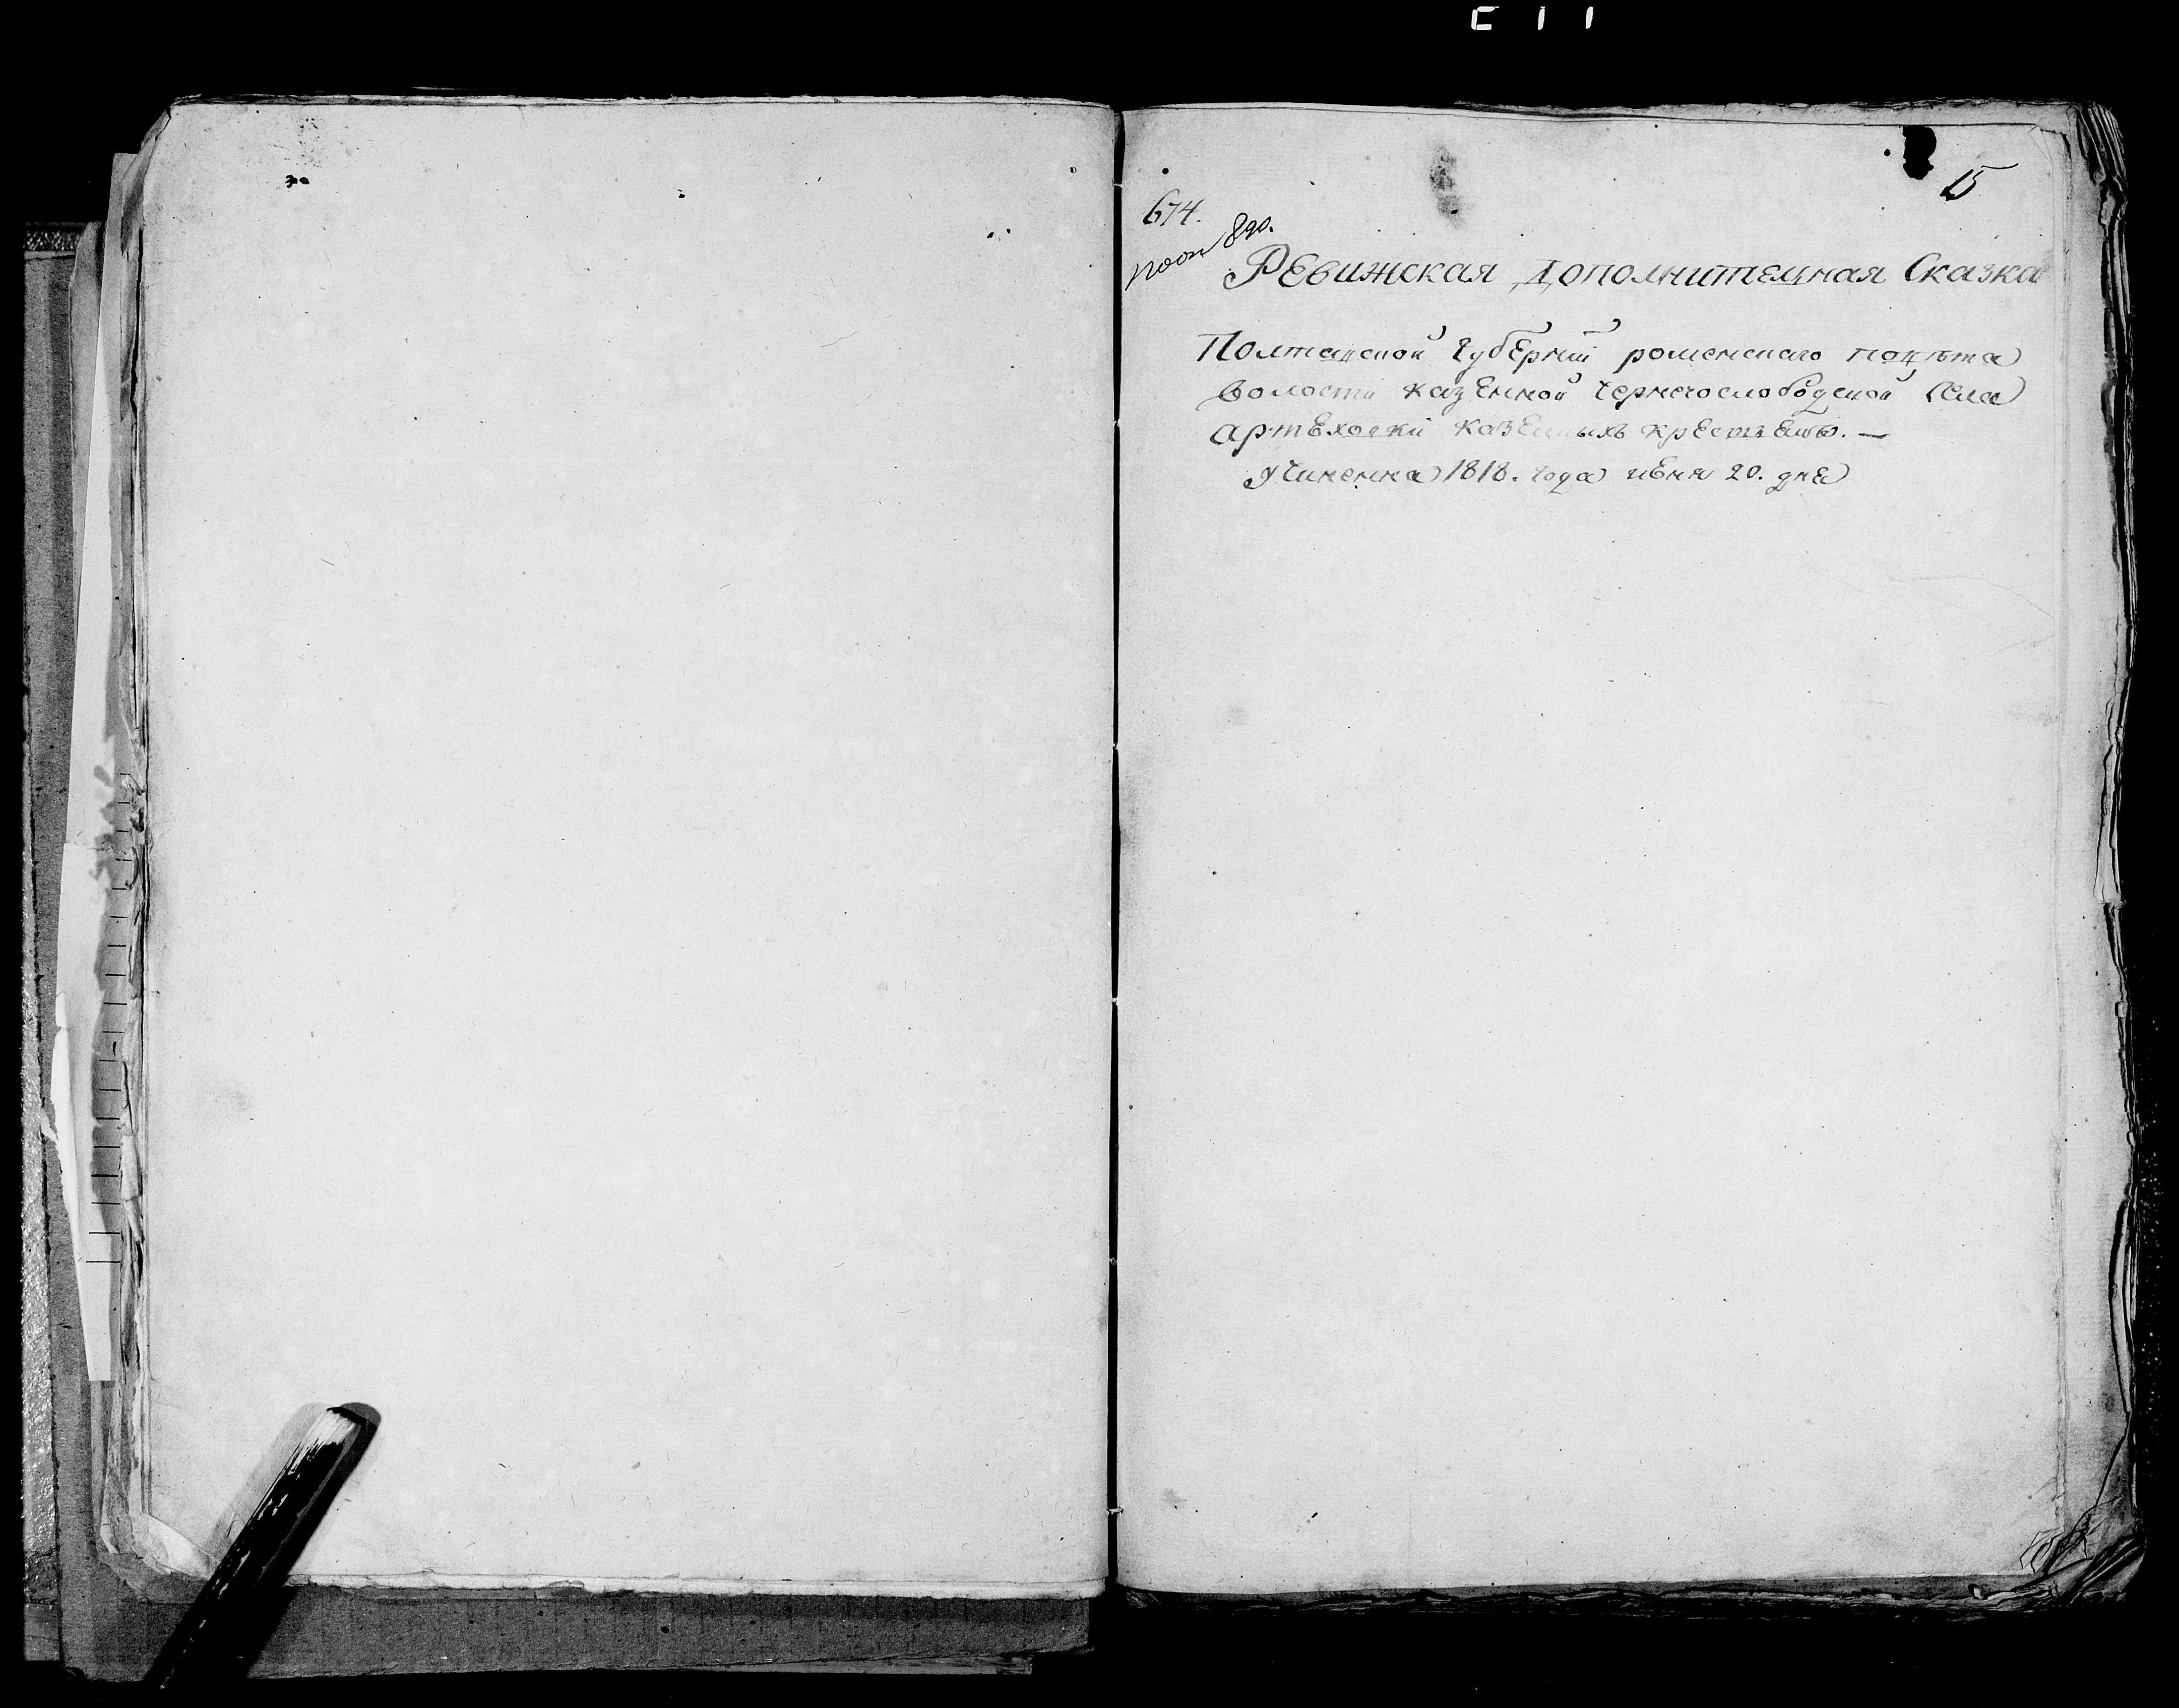 15
674.
890.
Ревижская Дополнителная Сказка
Полтавской Губернии роменского повета
волости казенной Чернечослободской Села
артеховки казенныхъ крестьянъ. —
учиненна 1818. года июня 20. дне